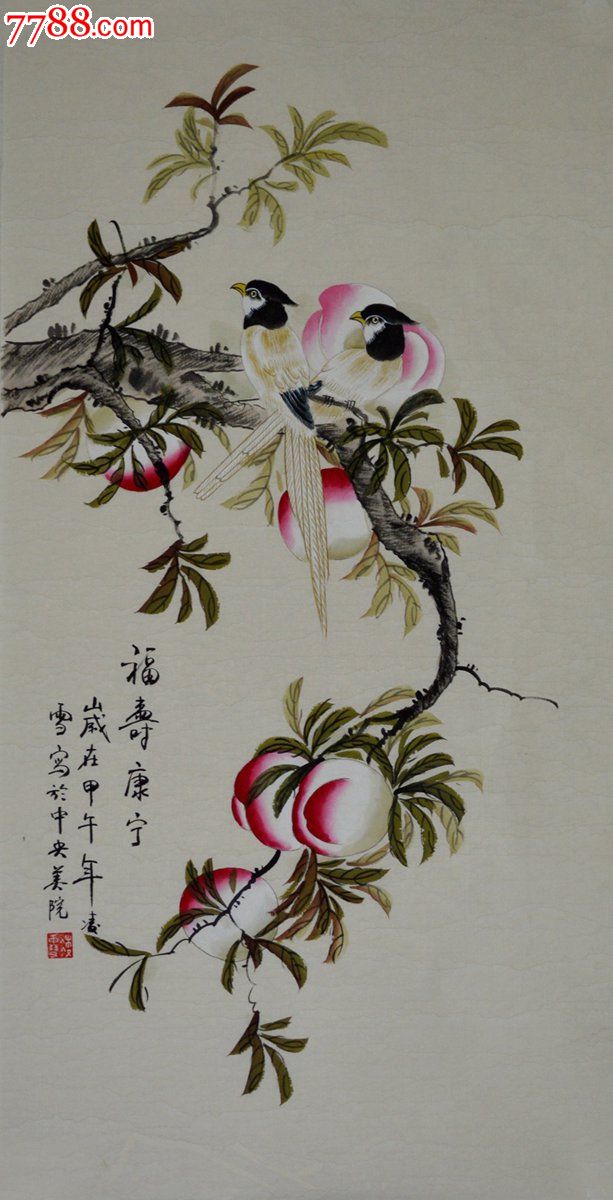 7788.com
福壽康宁
岁在甲午年凌
雪写於中央美院